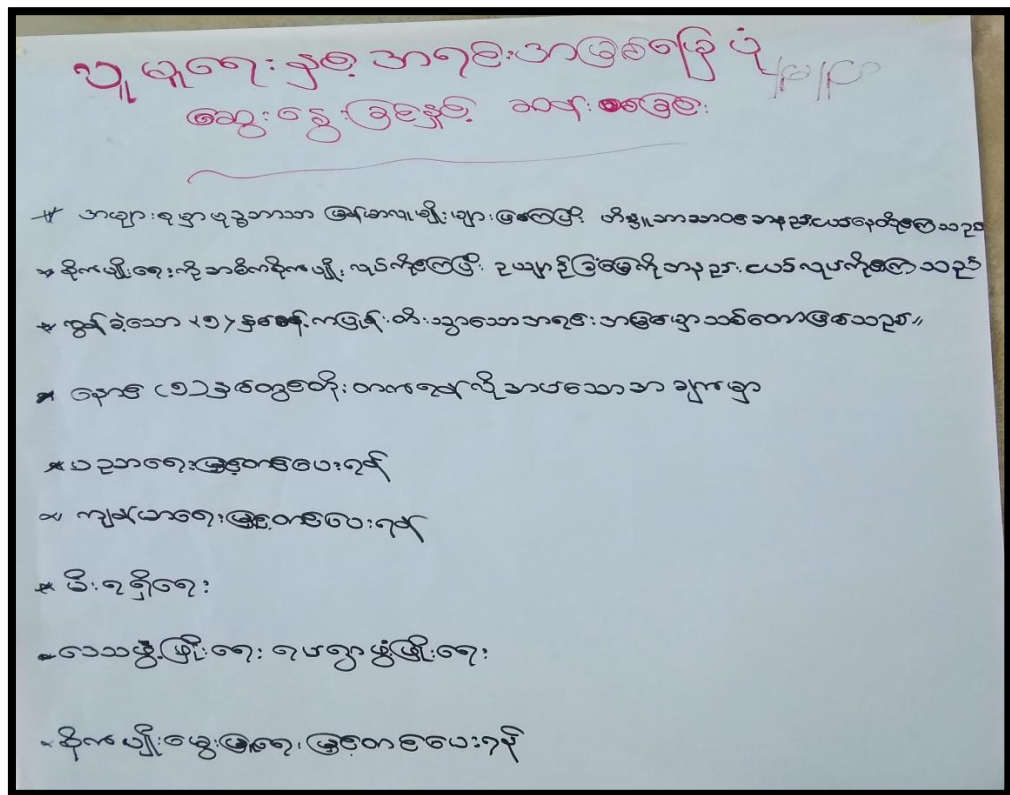 လူမှုရေးနှင့် အရင်းအမြစ်ပြေပုံ
ဆွေးနွေးခြင်းနှင့် ဆန်းစစ်ခြင်း
* အများစုမှာဗုဒ္ဓဘာသာ မြန်မာလူမျိုးများဖြစ်ကြပြီး ဟိန္ဒူဘာသာဝင်အနည်းငယ်နေထိုင်ကြသည်
* စိုက်ပျိုးရေးကိုအဓိကစိုက်ပျိုးလုပ်ကိုင်ကြပြီး ဥယျာဉ်ခြံမြေကိုအနည်းငယ်လုပ်ကိုင်ကြသည်
* လွန်ခဲ့သော <၅> နှစ်ခန့်ကပြုန်းတီးသွားသောအရင်းအမြစ်မှာသစ်တောဖြစ်သည်။
* နောင် (၅) နှစ်တွင်တိုးတက်ရန်လိုအပ်သောအချက်မှာ
* ပညာရေးမြှင့်တင်ပေးရန်
* ကျန်းမာရေးမြှင့်တင်ပေးရန်
* မီးရရှိရေး
- ဒေသဖွံ့ဖြိုးရေး ရပ်ရွာဖွံ့ဖြိုးရေး
- စိုက်ပျိုးမွေးမြူရေးမြှင့်တင်ပေးရန်